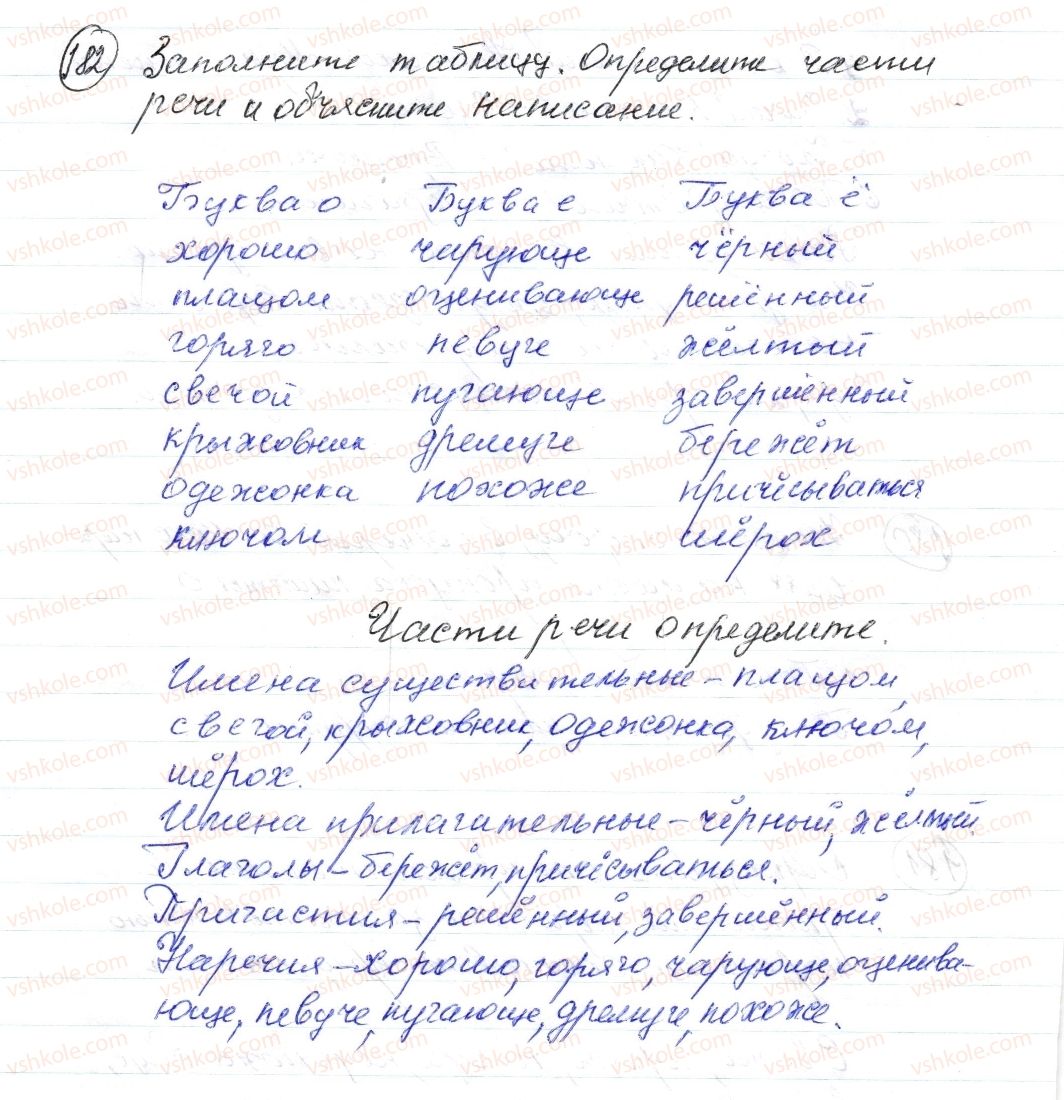 182 Заполните таблицу. Определите части
речи и объясните написание.
Буква о Буква е Буква ё
хорошо чарующе чёрный
плащом оценивающе решённый
горячо певуче жёлтый
свечой пугающе завершённый
крыжовник дремуче бережёт
одежонка похоже причёсываться
ключом шёрох
Части речи определите.
Имена существительные – плащом,
свечой, крыжовник, одежонка, ключом,
шёрох.
Имена прилагательные – чёрный, жёлтый.
Глаголы – бережёт, причёсываться.
Причастия – решённый, завершённый.
Наречия – хорошо, горячо, чарующе, оценива-
юще, певуче, пугающе, дремуче, похоже.